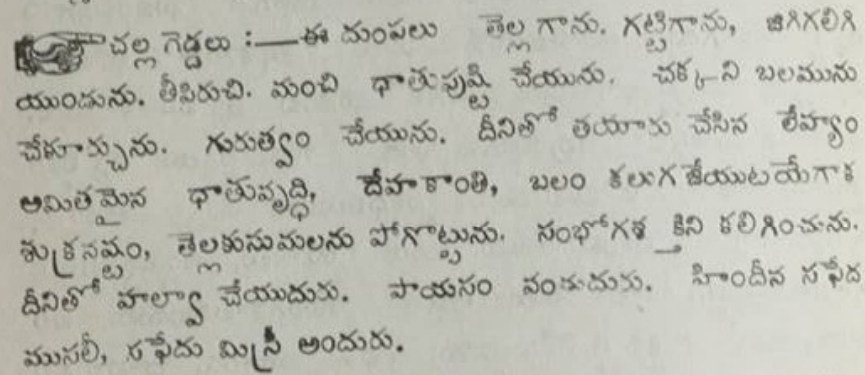 చల్ల గెడ్డలు :—ఈ దుంపలు తెల్ల గాను. గట్టిగాను, జిగిగలిగి
యుండును. తీపిరుచి. మంచి ధాతుపుష్టి చేయును. చక్కని బలమును
చేకూర్చును. గురుత్వం చేయును. దీనితో తయారు చేసిన లేహ్యం
అమితమైన ధాతువృద్ధి, దేహకాంతి, బలం కలుగ జేయుటయేగాక
శుక్రనష్టం, తెల్లకుసుమలను పోగొట్టును. సంభోగశక్తిని కలిగించును.
దీనితో హల్వా చేయుదురు. పాయసం వండుదురు. హిందీన సఫేద
ముసలీ, సఫేదు మిస్రీ అందురు.